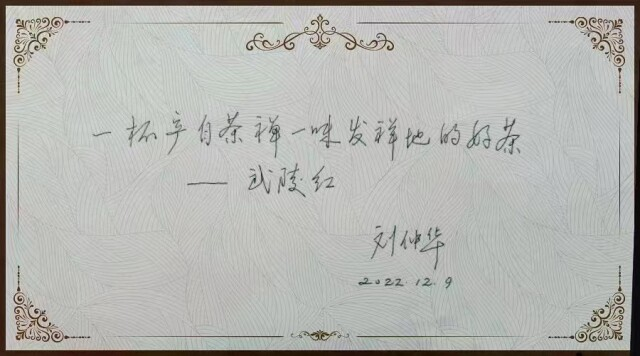 一杯产自茶禅一味发祥地的好茶
—— 武陵红
刘仲华
2022.12.9